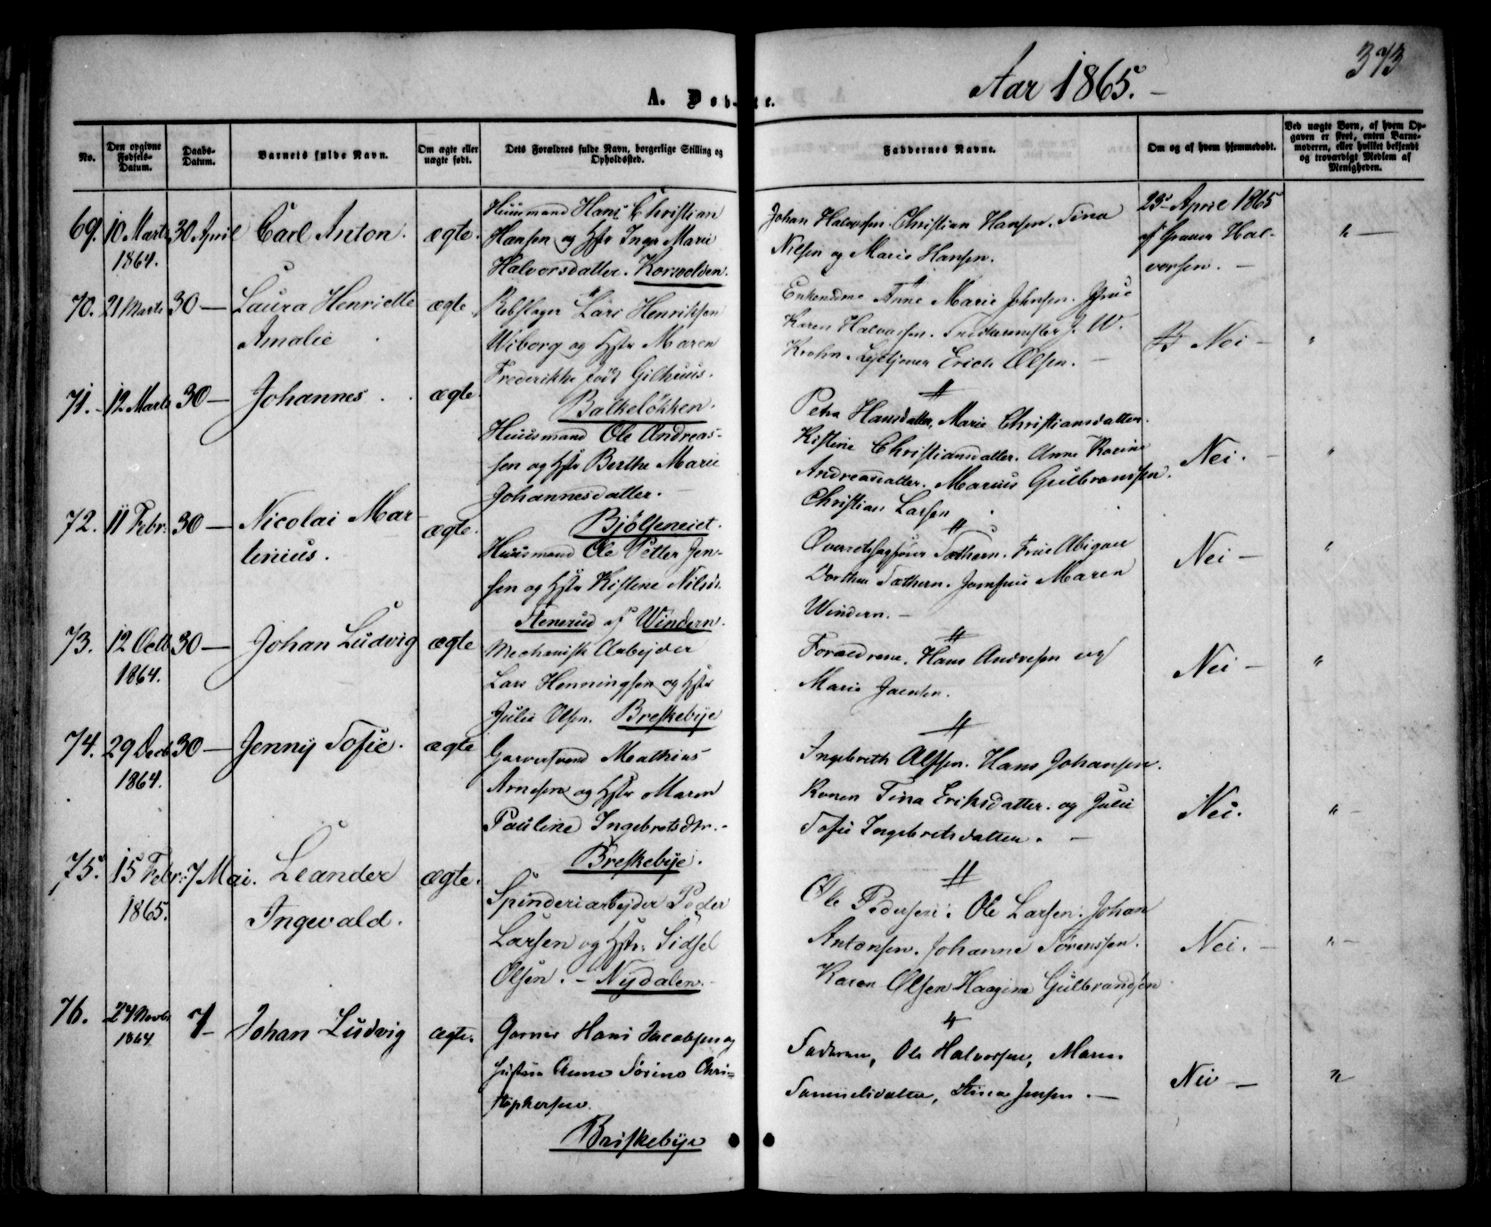 373
Aar 1865.
A. Døbte.
No.
Den opgivne Fødsels-Datum.
Daabs-Datum.
Barnets fulde Navn.
Om ægte eller uægte født.
Dets Forældres fulde Navn, borgerlige Stilling og Opholdssted.
Faddernes Navne.
Om og af hvem hjemmedøbt.
Ved uægte Børn, af hvem Opgaven er skeet, enten Barnemoderen, eller hvilket bekjendt og troværdigt Medlem af Menigheden.
69. 10 Marts 30 April Carl Anton. ægte.
1864.
Huusmand Hans Christian
Hansen og Hstr Inge Marie
Halvorsdatter. Korsvolden.
Johan Halvorsen. Christian Hansen. Tina
Nilsen og Marie Hansen.
23 April 1865
af Gunner Hal-
vorsen. —
" —
70. 21 Marts 30 — Laura Henriette ægte.
Amalie
Rebslager Lars Henriksen
Wiborg og Hstr Maren
Frederikke født Gilhuus.
Balkeløkken.
Enkemadme Anne Marie Johnsen.
Karen Halvorsen. J. W.
Krohn. Erich Olsen. —
Nei — "
71. 12 Marts 30 — Johannes. ægte
Huusmand Ole Andreas-
sen og Hstr Berthe Marie
Johannesdatter. —
Bjølseneiet.
Petra Hansdatter. Marie Christiansdatter.
Kistine Christiansdatter. Anne Karine
Andreasdatter. Marius Gulbranssen.
Christian Larsen
Nei. — "
72. 11 Febr. 30 — Nicolai Mar- ægte.
tinius.
Huusmand Ole Petter Jen-
sen og Hstr Kistene Nilsd.
Stenerud af Windern.
Overretssagfører Tathern. Frue Abigael
Dorthea Tathern. Jomfrue Maren
Windern. —
Nei — "
73. 12 Octb 30 — Johan Ludvig ægte
1864.
Mechanisk Arbejder
Lars Henningsen og Hstr
Julie Olsen. Breskebye
Foraldrene. Hans Andresen og
Marie Jacnsen.
Nei — "
74. 29 Decb 30 — Jenny Sofie. ægte
1864.
Garversvend Mathias
Arnesen og Hstr Maren
Pauline Ingebrotsdtr. -
Breskebye.
Ingebreth Olssen. Hans Johansen.
Konen Tina Eriksdatter. og Julie
Sofie Ingebretsdatter. —
Nei. " —
75. 15 Febr. 7 Mai. Leander ægte.
1865. Ingevald.
Spinderiarbejder Peder
Larsen og Hstr. Sidsel
Olsen. — Nydalen. -
Ole Pedersen. Ole Larsen. Johan
Antonsen. Johanne Sørenssen.
Karen Olsen Haagine Gulbrandsen
Nei. — " —
76. 24 Novbr 7 — Johan Ludvig ægte.
1864
Garver Hans Jacobsen og
Hustru Anne Sørine Chri-
stophersen.
Briskebye
Faderen, Ole Halvorsen, Maren
Samuelsdatter, Stina Jensen. —
Nei — "